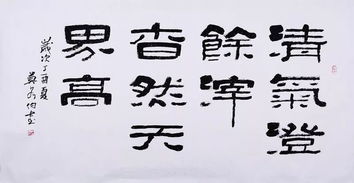 清氣澄
餘滓
杳然天
界高
歲次丁酉夏
書